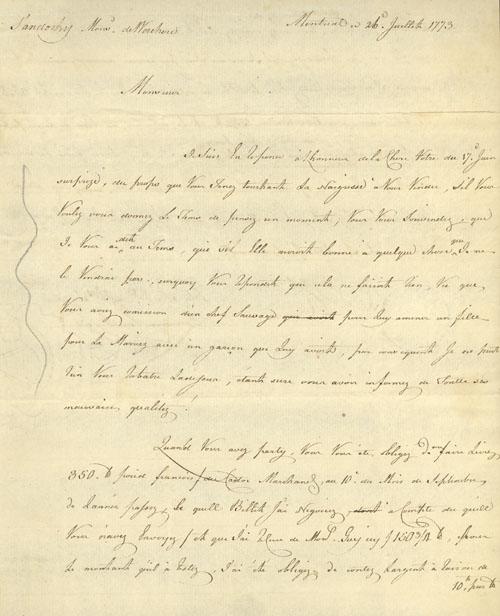 Sandosky Monsr. de
Montreal ce 26e Juillete 1773
Monsieur
Je Suis En Reponce a l'honneur de la Chere Votre du 17e Juin
surprize, du propos que Vous Tenez touchant La Naigresse a Nous Vendue, S'il Vous
voulez vous donnez Le Tems de pensez un momente, Vous Vous Souviendez, que
Je Vous ai dite au Tems, que s'il Elle n'avoit bonne a quelque chose, que Je ne
le Vendrai pas, surquoy Vous repondite que cela ne faisoit rien, Vu que
Vous aviez comission d'un chef Sauvage qui avoit pour Luy amener un fille
pour La Mariez avec un garçon que Luy avoit, par consequent Je ne puis
rien Vous rabatre la dessus, étant sure vous avoir informez de Toutte ses
mauvaise qualitez!
Quand Vous avez party, Vous Vous éte obligez de me faire Livrez
350 lb poid francois du Castor Marchand au 10e du Mois de Septembre,
de L'année passez, Le quelle Billete J'ai Negociez, dont a Compte du quelle
Vous n'avez Envoyez que J'ai recue de Monsr. 150 3/4 lb, pour
Le montant qui a restez, J'ai été obligez de contez L'argent a raison de
10 par lb